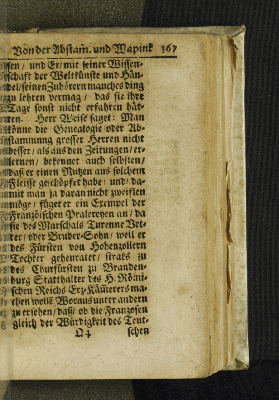 Von der Abstam. und Wapink 367
sen / und Er mit seiner Wissen-
schaft der Weltkünste und Hän-
del / seinen Zuhörern manches ding
zu lehren vermag / das sie ihre
Tage sonst nicht erfahren hät-
ten. Herr Weise saget: Man
könne die Genealogie oder Ab-
stammung grosser Herren nicht
besser / als aus den Zeitungen / er-
lernen / bekennet auch selbsten /
daß er einen Nutzen aus solchem
Fleisse geschöpfet habe: und / da-
mit man ja daran nicht zweifeln
möge / füget er ein Exempel der
Französischen Pralereyen an / da
sie des Marschals Turenne Vet-
ter / oder Bruder-Sohn / weil er
des Fürsten von Hohenzollern
Tochter geheuratet / straks zu
des Churfürsten zu Branden-
burg Statthalter des H. Römi-
schen Reichs Erz-Kämerers ma-
chen wolle. Woraus unter andern
zu ersehen / daß / ob die Franzosen
gleich der Würdigkeit des Teut-
Q 4 schen